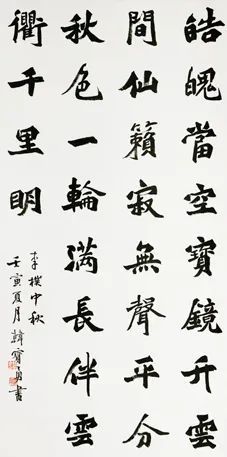 皓魄當空寶鏡升雲
間仙籟寂無聲平分
秋色一輪满長伴雲
衢千里明
李樸中秋
壬寅夏月韓寶書